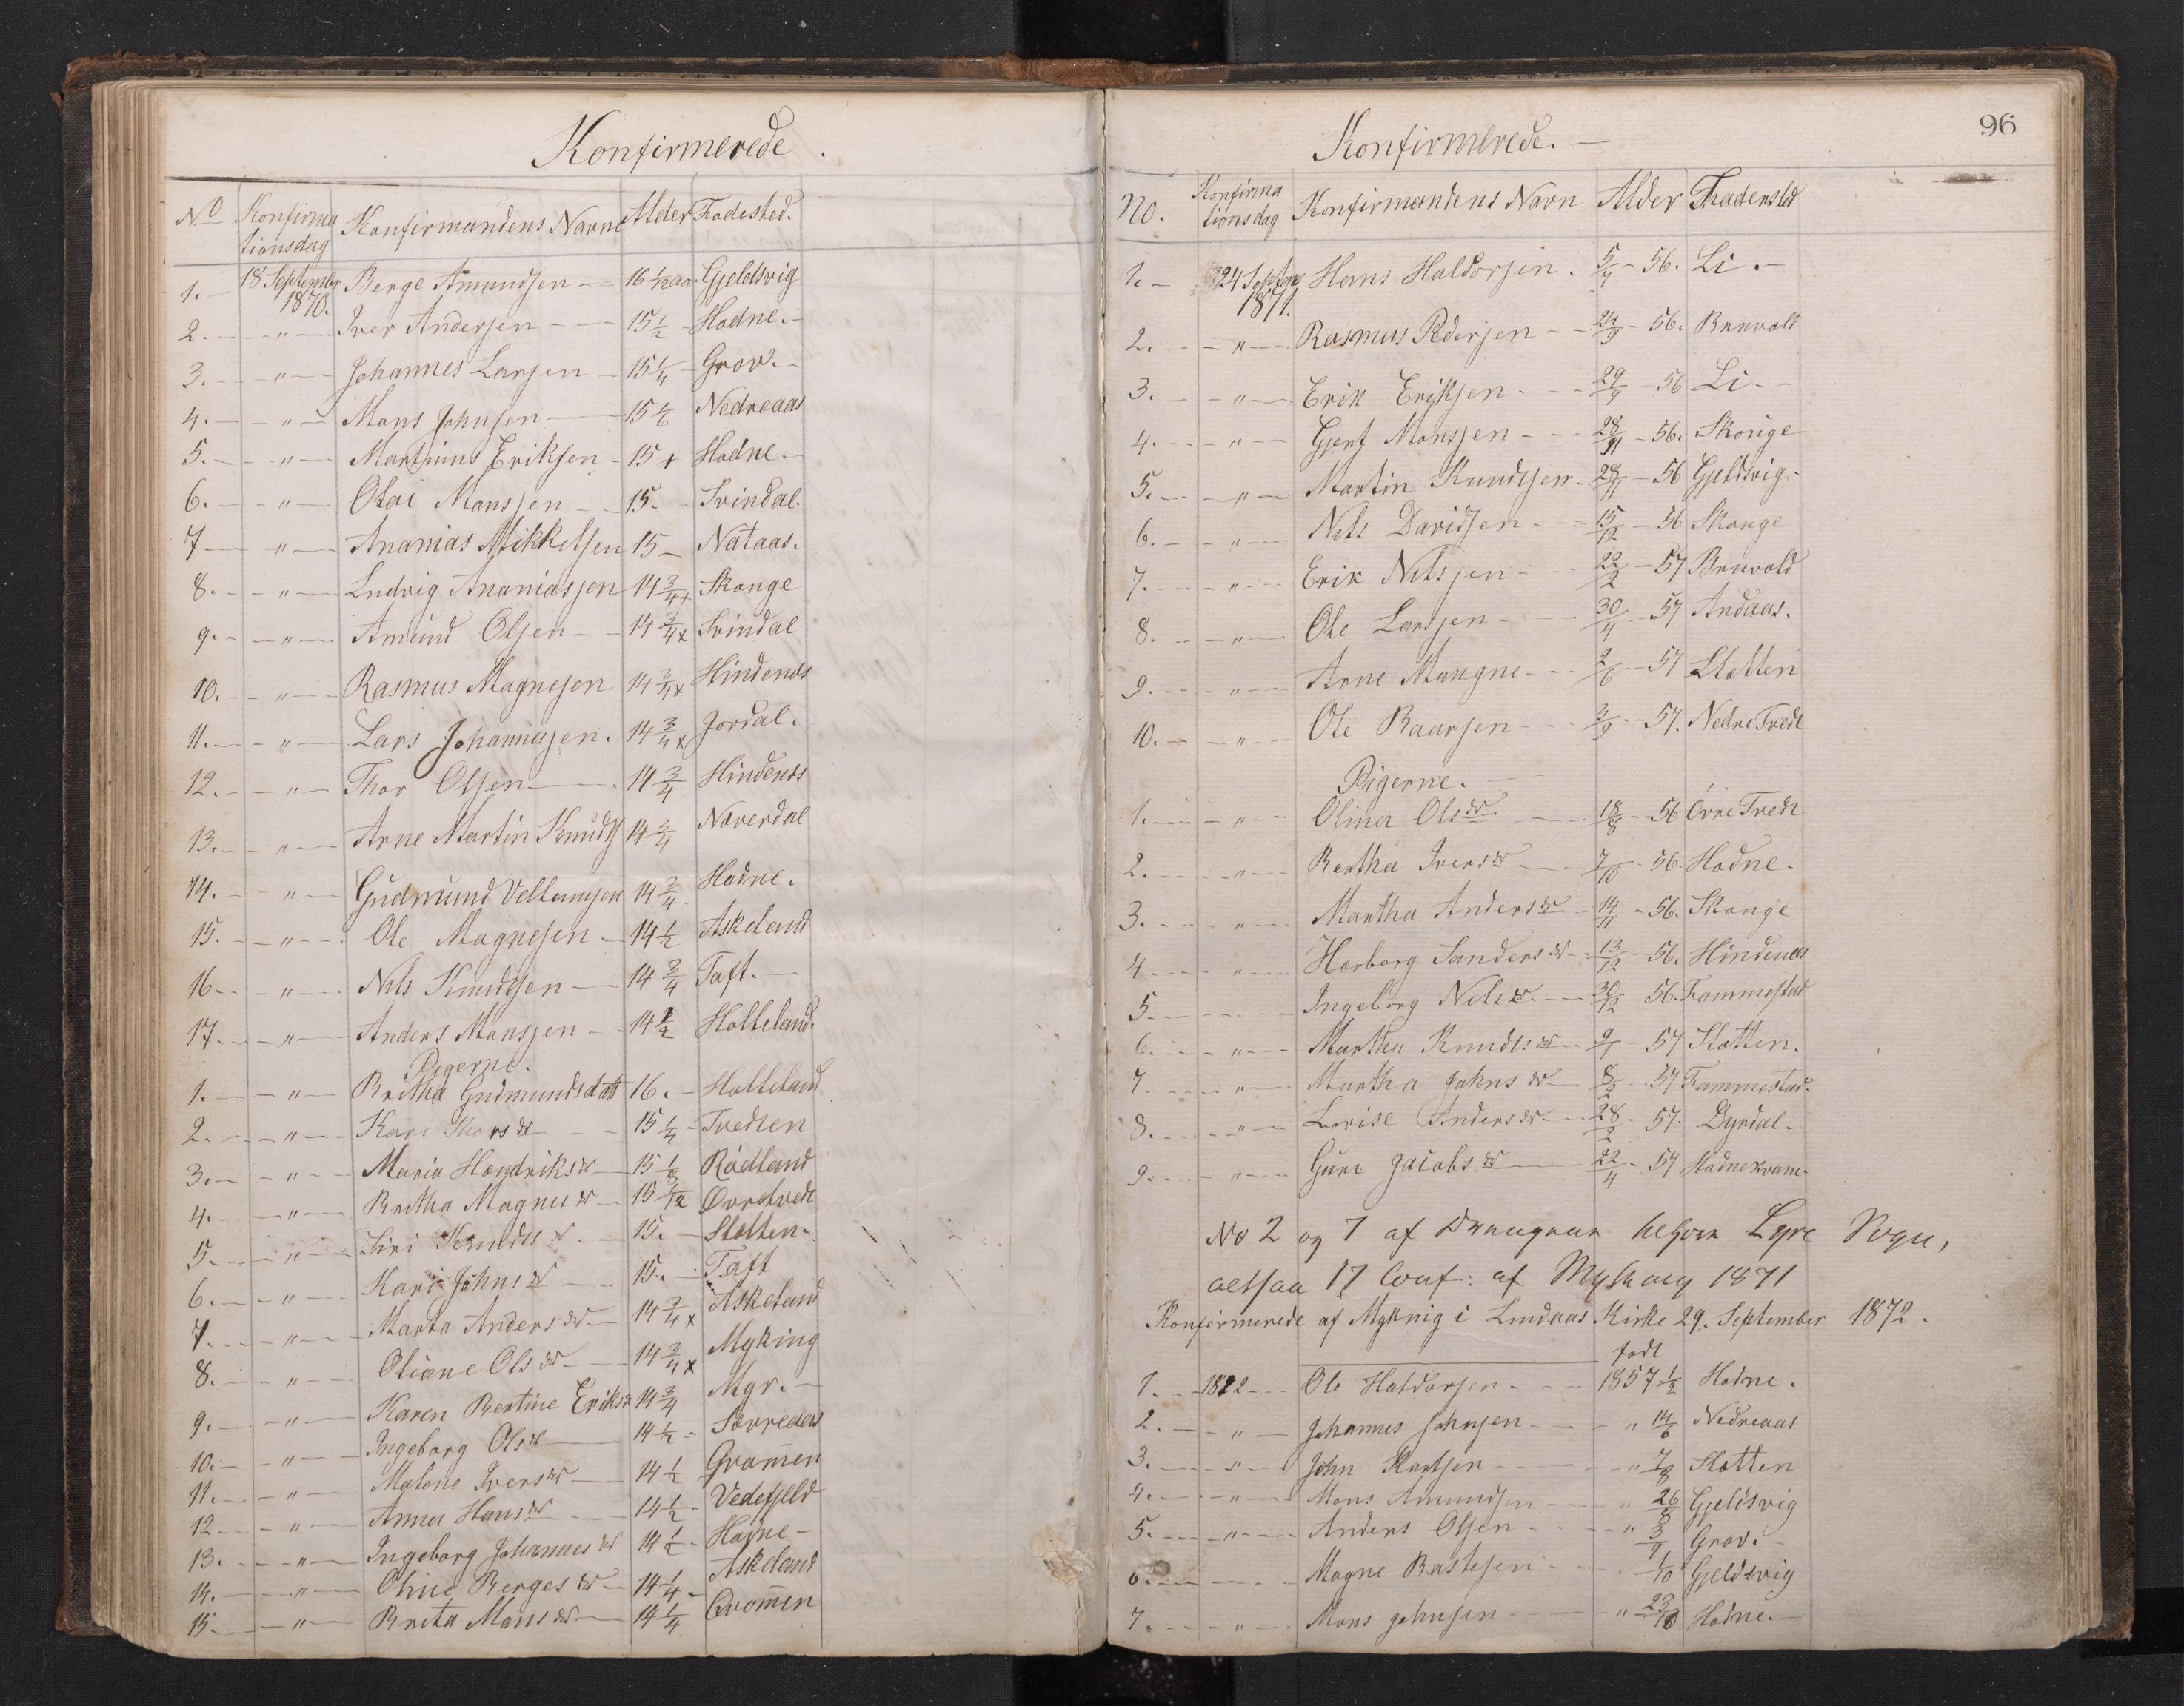 Konfirmerede.
No Konfirma tionsdag Konfirmandens Navne Alder Fødested.
1. 18 September 1870. Berge Amundsen 16 1/2 aar Gjeldsvig
2. " Iver Andersen 15 1/2 Hodne.
3. " Johannes Larsen 15 1/4 Grov.
4. " Mons Johnsen 15 1/6 Nedreaas
5. " Martinus Eriksen 15 + Hodne.
6. " Olai Monssen 15. Svindal.
7 " Ananias Mikkelsen 15 Nataas.
8. " Ludvig Ananiassen 14 3/4 + Skouge
9. " Amund Olsen 14 3/4 x Svindal
10. " Rasmus Magnesen 14 3/4 x Hindenes
11. " Lars Johannesen. 14 3/4 x Jordal.
12. " Thor Olsen 14 3/4 Hindenes
13. " Arne Martin Knuds 14 3/4 Nøverdal
14. " Gudmund Vellemsen 14 3/4 Hodne.
15. " Ole Magnesen 14 1/2 Askeland
16. " Nils Knudsen 14 3/4 Toft.
17. " Anders Monssen 14 1/2 Holleland.
Pigerne.
1. " Britha Gudmundsdatt 16. Holleland
2. " Kari Thors dr 15 1/4 Tvedten
3. " Maria Hendriks dr 15 1/8 Rødland
4. " Britha Magnes dr 15 1/12 Øvretvedt
5 " Siri Knuds dr 15. Slotten.
6. " Kari Johns dr 15. Toft
7. " Marta Anders dr 14 3/4 x Askeland
8. " Oliane Ols dr 14 3/4 x Myking
9. " Karen Bertine Eriksd 14 3/4 Myr.
10. " Ingeborg Ols dr 14 1/2 Sørreaas
11. " Malene Ivers dr 14 1/2 Gromen
12 " Anna Hans dr 14 1/2 Vedefjeld
13. " Ingeborg Johannes dr 14 1/2 Hodne
14. " Oline Berges dr 14 1/4 Askeland
15. " Brita Mons dr 14 1/4 Qvomen
96
Konfirmerede.
No. Konfirma tionsdag Konfirmandens Navn Alder Fødested
1. 24 Septbr 1871. Hans Haldorsen. 5/4 56. Li.
2. " Rasmus Pedersen 24/9 56. Bruvold
3. " Erik Eriksen 29/9 56 Li.
4. " Gjert Monssen 28/11 56. Skouge
5. " Martin Knudsen 28/11 56 Gjeldsvig.
6. " Nils Davidsen 15/12 56 Skouge
7. " Erik Nilssen 22/2 57 Bruvold
8. " Ole Larssen 30/4 57 Andaas.
9. " Arne Mangne 2/6 57 Slotten
10. " Ole Baarsen 3/9 57. Nedre Tvedt
Pigerne.
1. " Olina Ols dr. 18/8 56 Övre Tvedt
2. " Bertha Ivers dr 7/10 56. Hodne.
3. " Martha Anders dr 14/11 56. Skouge
4 " Herborg Sanders dr 13/12 56. Hindenes
5 Ingeborg Nils dr. 30/12 56. Fammestad
6. " Martha Knuds dr 9/1 57 Slotten.
7 " Martha Johns dr 8/2 57 Fammestad.
8. " Lovise Anders dr 28/2 57. Dyrdal.
9. " Guri Jacobs dr 22/4 57 Hodnekvam.
No 2 og 7 af Drengene til Sogn,
altsaa 17 Conf: af Myking 1871
Konfirmerede af Myknig i Lindaas Kirke 29. September 1872.
født
1. 1872 Ole Haldorsen 1857 1/2 Hodne.
2. " Johannes Johnsen " 14/6 Nedreaas
3. " John Karlsen " 7/8 Slotten
4. " Mons Amundsen " 26/8 Gjeldsvig
5. " Anders Olsen " 3/9 Grov.
6. Magne Rastesen 1/10 Gjeldsvig
7. " Mons Johnsen " 23/10 Hodne.